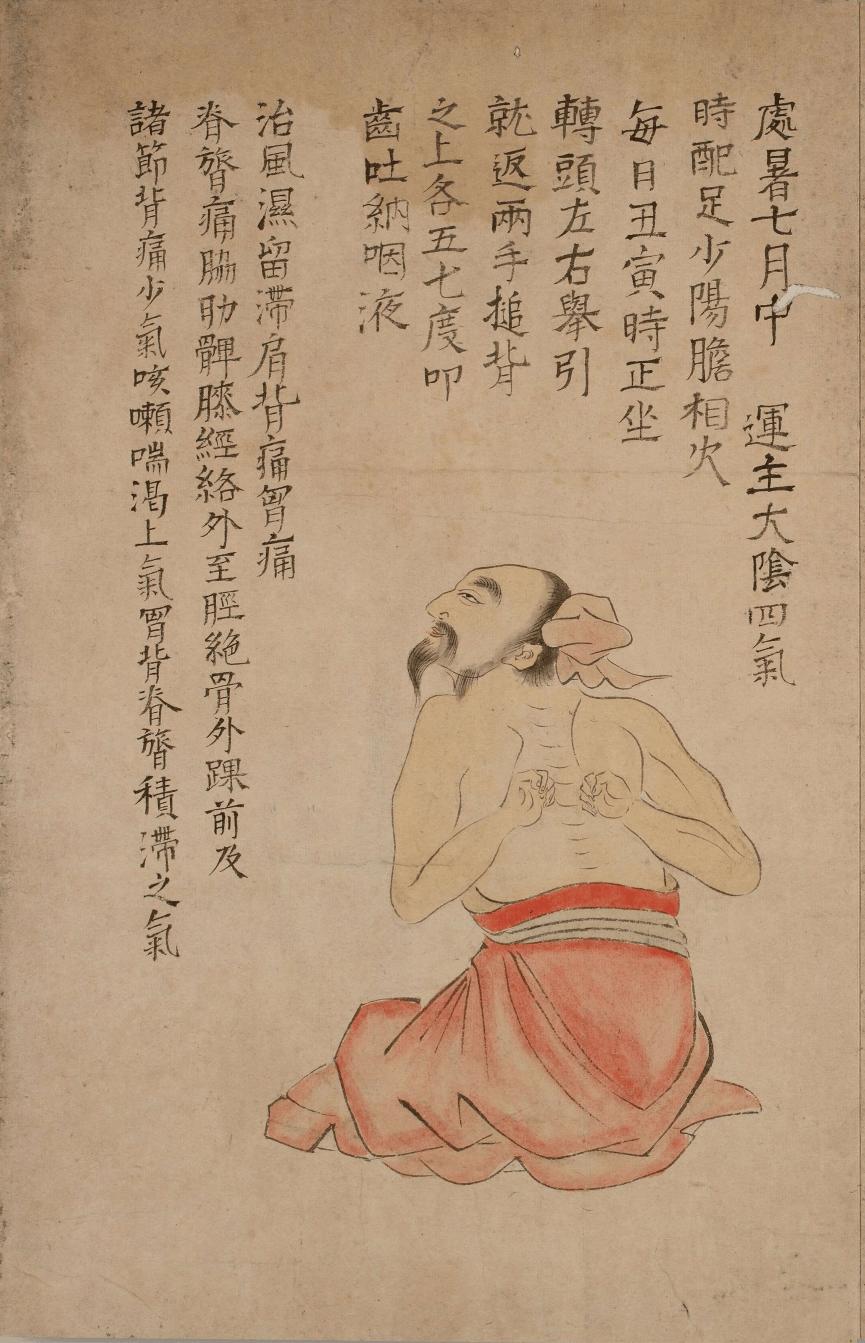 處暑七月中　運主大陰四氣
時配足少陽膽相火
每日丑寅時正坐
轉頭左右舉引
就返兩手搥背
之上各五七度叩
齒吐納咽液
治風濕留滯肩背痛胷痛
脊膂痛脇肋髀膝經絡外至脛絶骨外踝前及
諸節皆痛少氣咳嗽喘渴上氣胷背脊膂積滯之氣